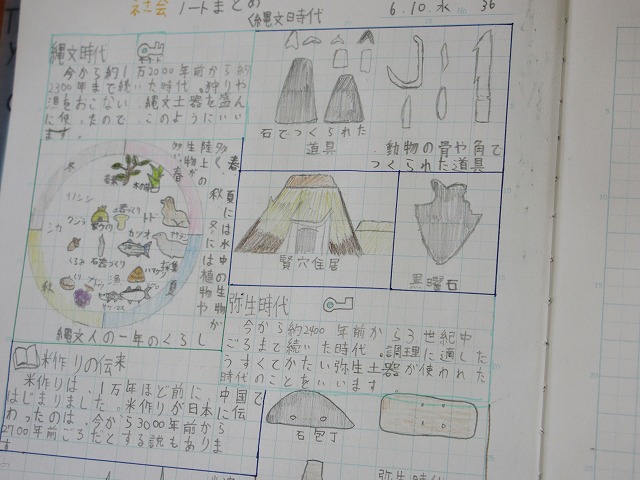 社会 ノートまとめ
6.10.水
No. 36
〈縄文時代
縄文時代
今から約1万2000年前から約
2300年まで続いた時代。狩りや
漁をおこない、縄文土器を盛ん
に使ったので、このようにいい
ます。
石でつくられた
道具
動物の骨や角で
つくられた道具
春
夏には水中の生物が
秋、冬には植物や
陸上の
生物が
冬
イノシシ
シカ
秋
夏
カツオ
トド
土器づくり
石器づくり
くるみ
くり
縄文人の一年のくらし
賢穴住居
黒曜石
弥生時代
今から約2400年前から3世紀中
ごろまで続いた時代。調理に適した
うすくてかたい弥生土器が使われた
時代のことをいいます。
米作りの伝来
米作りは、1万年ほど前に、中国で
はじまりました。米作りが日本に伝
わったのは、今から3000年前から
2700年前ころだとする説もありま
す
石包丁
弥生時代